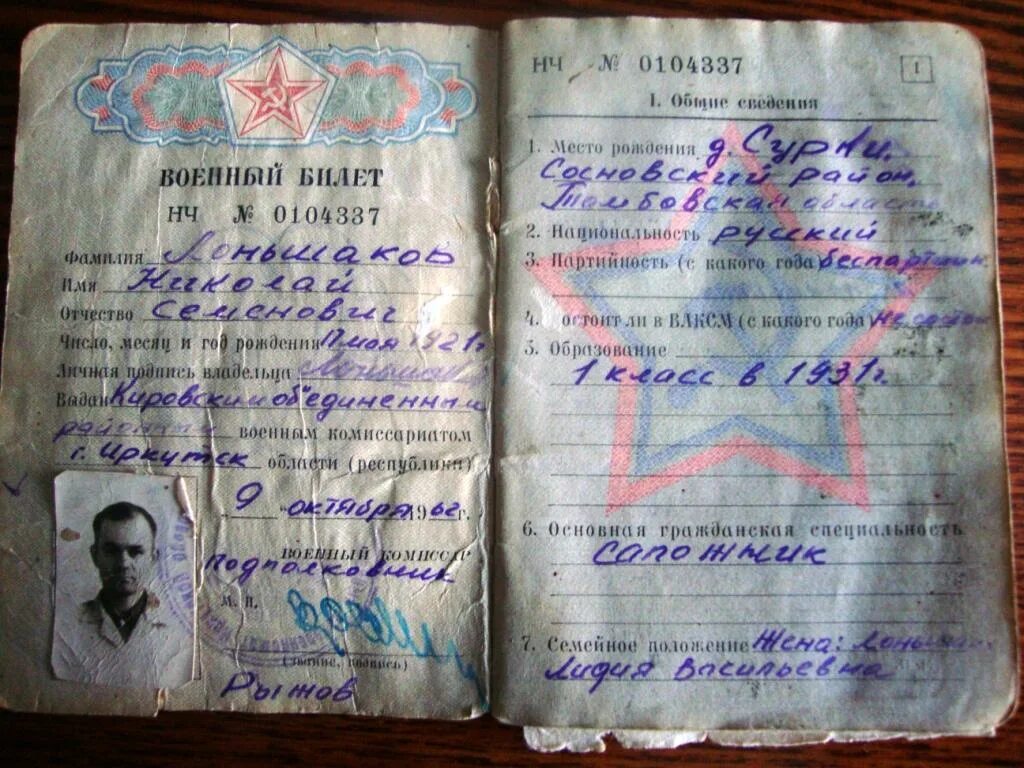 ВОЕННЫЙ БИЛЕТ
НЧ № 0104337
Фамилия Лоньшаков
Имя Николай
Отчество Семенович
Число, месяц и год рождения 11 мая 1921г
Личная подпись владельца Лоньшаков
Выдан Кировским объединенным
районным военным комиссариатом
г. Иркутск области (республики)
9 октября 1962 г.
ВОЕННЫЙ КОМИССАР
Подполковник
М. П.
(звание, подпись)
Рыжов
НЧ № 0104337
1
I. Общие сведения
1. Место рождения д. Сурки.
Сосновский район,
Тамбовская область
2. Национальность русский
3. Партийность (с какого года) беспартийн.
4. Состоит ли в ВЛКСМ (с какого года) не состо
5. Образование
1 класс в 1931г.
6. Основная гражданская специальность
сапожник
7. Семейное положение Жена:
Лидия Васильевна